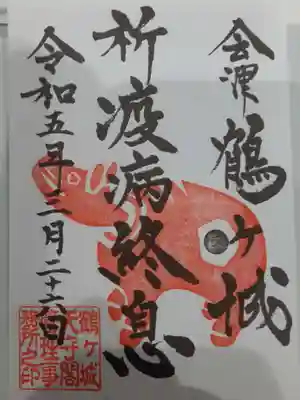 会津 鶴ヶ城
祈疫病終息
令和五年三月二十六日
鶴ヶ城
天守閣